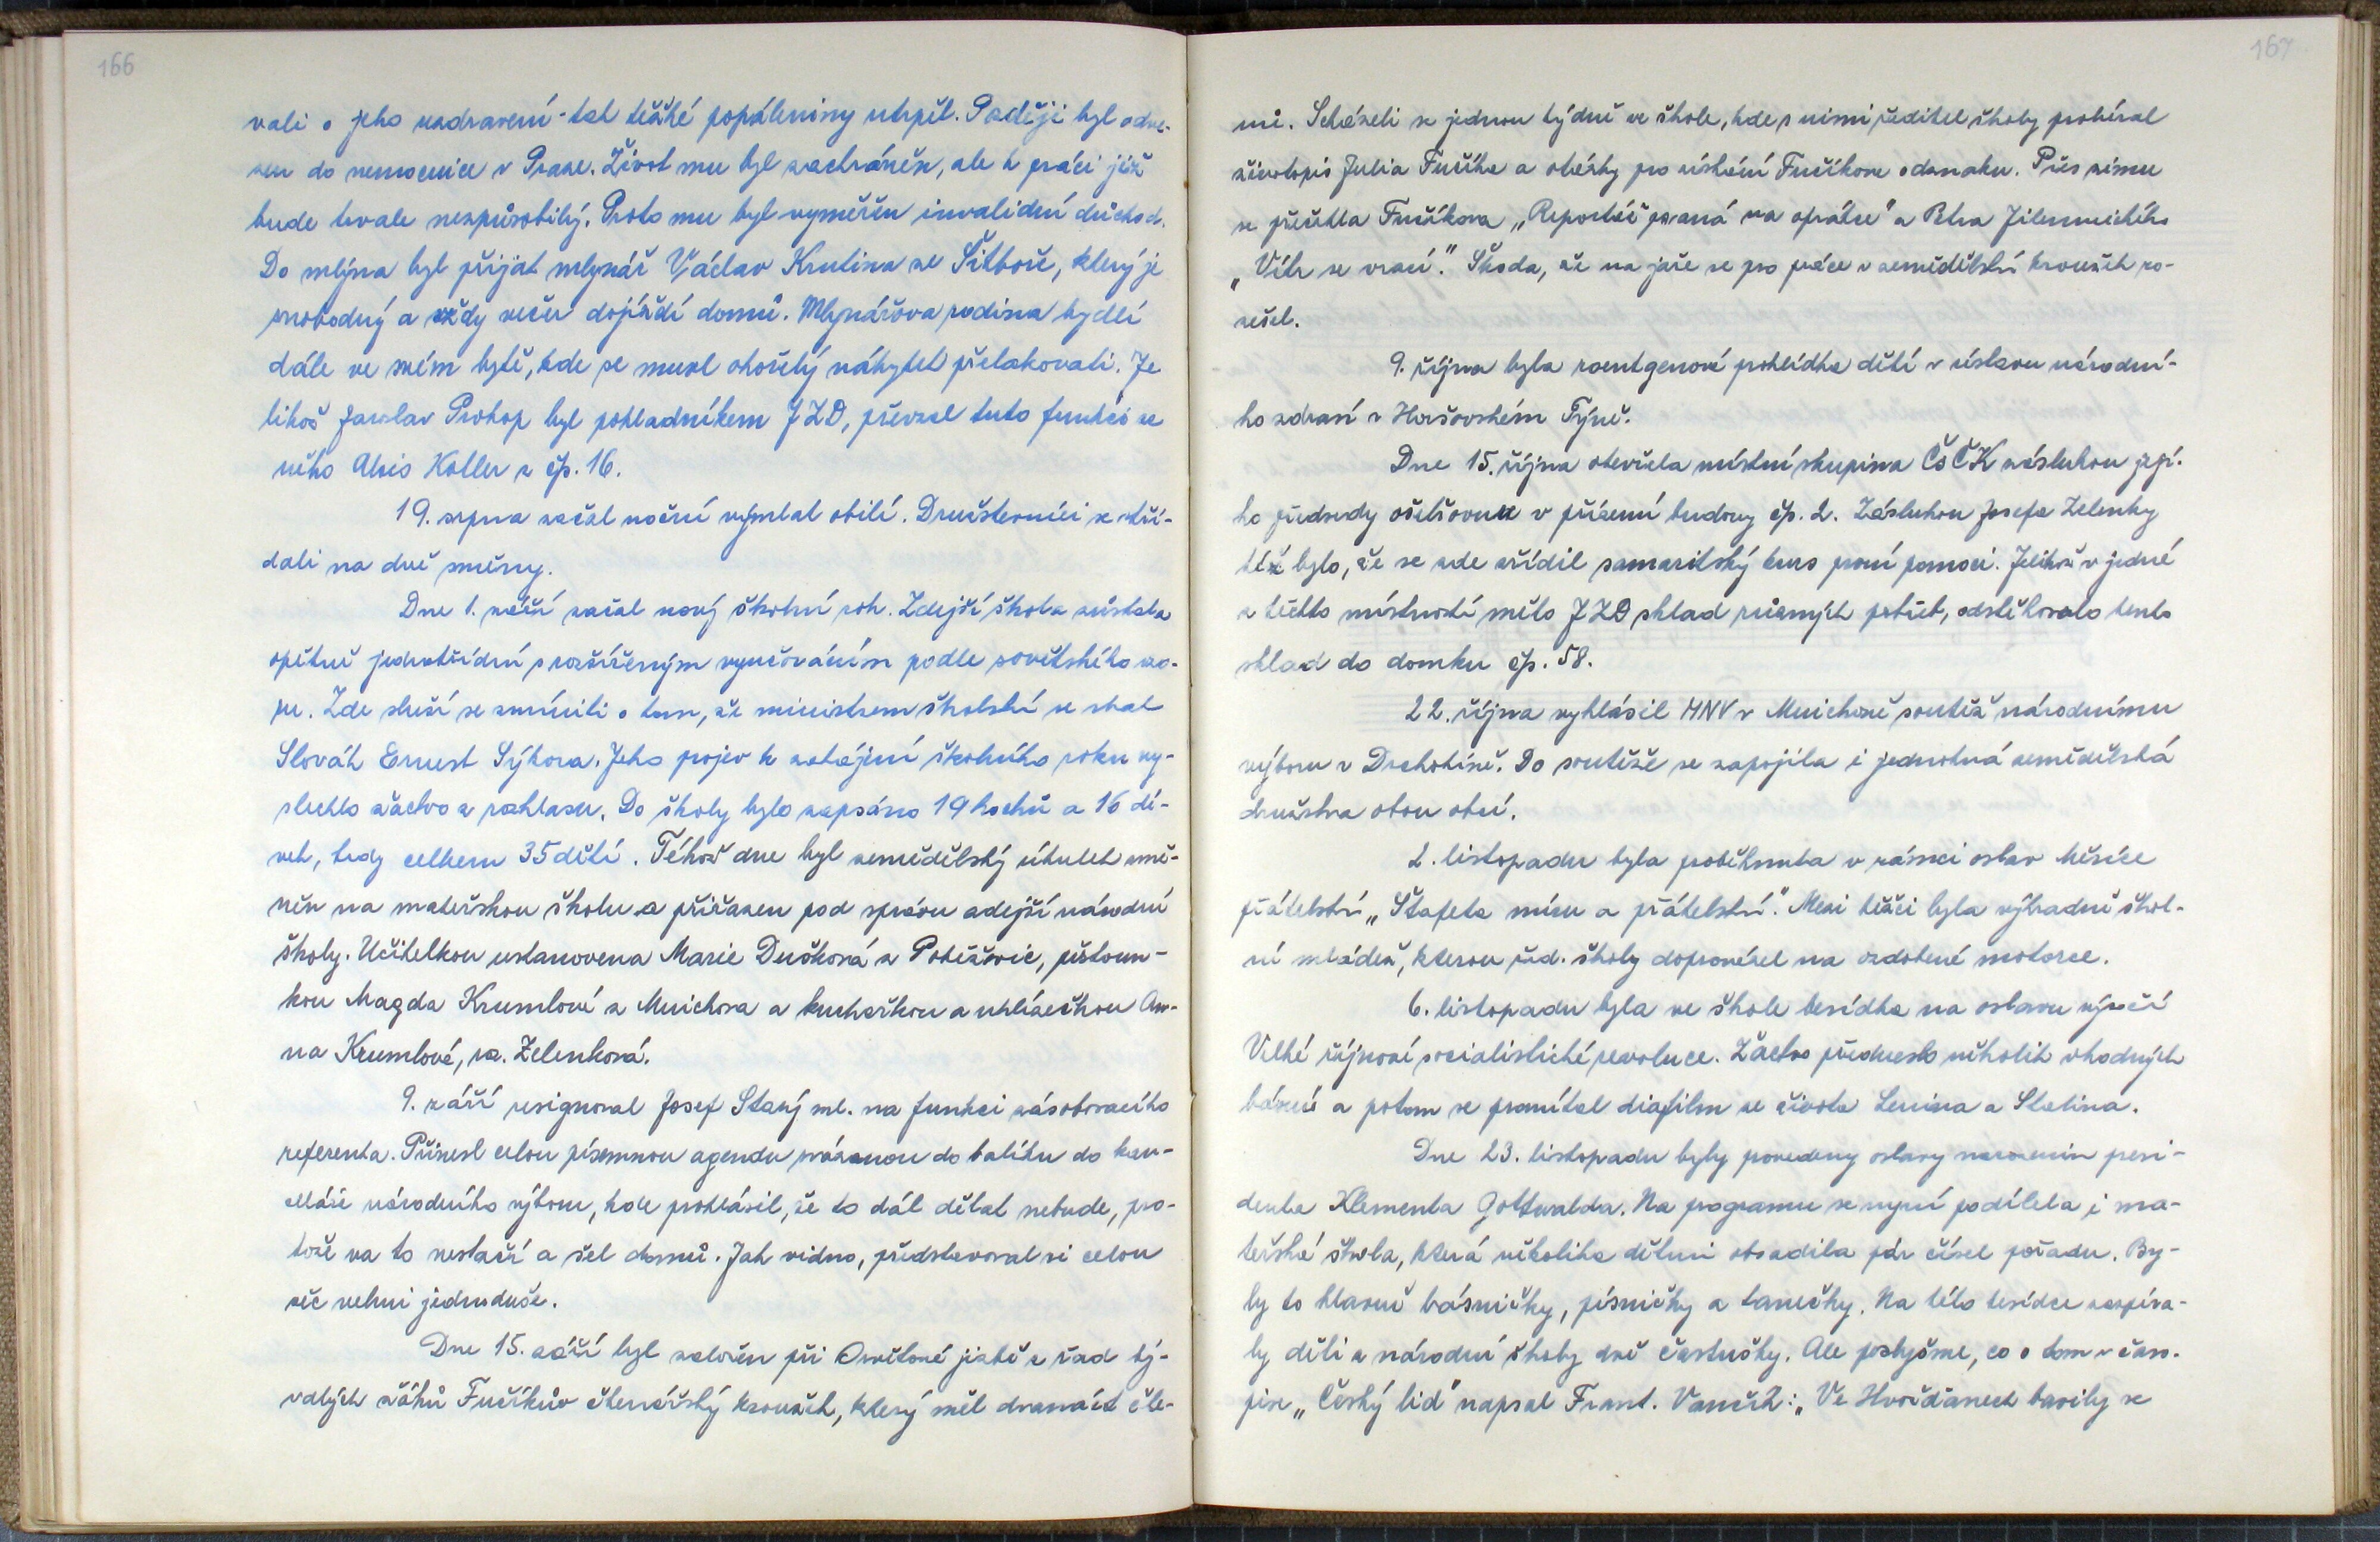 166
vali o jeho uzdravení - tak těžké popáleniny utrpěl. Později byl odve-
zen do nemocnice v Praze. Život mu byl zachráněn, ale k práci již
bude trvale nezpůsobilý. Proto mu byl vyměřen invalidní důchod.
Do mlýna byl přijat mlynář Václav Krutina ze Štitboře, který je
svobodný a vždy večer dojíždí domů. Mlynářova rodina bydlí
dále ve svém bytě, kde se musel ohořelý nábytek přelakovati. Je
likož Jaroslav Prokop byl pokladníkem JZD, převzal tuto funkci ze
něho Alois Koller z čp. 16.
19. srpna začal noční výmlat obilí. Družstevníci se stří-
dali na dvě směny.
Dne 1. září začal nový školní rok. Zdejší škola zůstala
opětně jednotřídní s rozšířeným vyučováním podle sovětského vzo-
ru. Zde sluší se zmíniti o tom, že ministrem školství se stal
Slovák Ernest Sýkora. Jeho projev k zahájení školního roku vy-
slechlo žactvo z rozhlasu. Do školy bylo zapsáno 19 hochů a 16 dí-
vek, tedy celkem 35 dětí. Téhož dne byl zemědělský útulek změ-
něn na mateřskou školu a přiřazen pod správu zdejší národní
školy. Učitelkou ustanovena Marie Dušková z Poběžovic, pěstoun-
kou Magda Krumlová z Mnichova a kuchařkou a uklízečkou An-
na Krumlová, roz. Zelenková.
9. září resignoval Josef Starý ml. na funkci zásobovacího
referenta. Přinesl celou písemnou agendu svázanou do balíku do kan-
celáře národního výboru, kde prohlásil, že to dál dělat nebude, pro-
tože na to nestačí a šel domů. Jak vidno, představoval si celou
věc velmi jednoduše.
Dne 15. září byl založen při Osvětové jizbě z řad bý-
valých žáků Fučíkův čtenářský kroužek, který měl dvanáct čle-
167
nů. Scházeli se jednou týdně ve škole, kde s nimi ředitel školy probíral
životopis Julia Fučíka a otázky pro získání Fučíkova odznaku. Přes zimu
se přečetla Fučíkova „Reportáž psaná na oprátce" a Petra Jilemnického
„Vítr se vrací." Škoda, že na jaře se pro práce v zemědělství kroužek ro-
zešel.
9. října byla roentgenová prohlídka dětí v ústavu národní-
ho zdraví v Horšovském Týně.
Dne 15. října otevřela místní skupina ČsČK zásluhou její-
ho předsedy ošetřovnu v přízemí budovy čp. 2. Zásluhou Josefa Zelenky
též bylo, že se zde zřídil samaritský kurs první pomoci. Jelikož v jedné
z těchto místností mělo JZD sklad různých potřeb, odstěhovalo tento
sklad do domku čp. 58.
22. října vyhlásil MNV v Mnichově soutěž národnímu
výboru v Drahotíně. Do soutěže se zapojila i jednotná zemědělská
družstva obou obcí.
2. listopadu byla proběhnuta v rámci oslav Měsíce
přátelství „Štafeta míru a přátelství." Mezi běžci byla výhradně škol-
ní mládež, kterou řed. školy doprovázel na ozdobené motorce.
6. listopadu byla ve škole besídka na oslavu výročí
Velké říjnové socialistické revoluce. Žactvo předneslo několik vhodných
básní a potom se promítal diafilm ze života Lenina a Stalina.
Dne 23. listopadu byly provedeny oslavy narozenin presi-
denta Klementa Gottwalda. Na programu se nyní podílela i ma-
teřská škola, která několika dětmi obsadila pár čísel pořadu. By-
ly to hlavně básničky, písničky a tanečky. Na této besídce zazpíva-
ly děti z národní školy dvě častušky. Ale poslyšme, co o tom v časo-
pise „Český lid" napsal Frant. Vančík: „Ve Hvožďanech bavily se